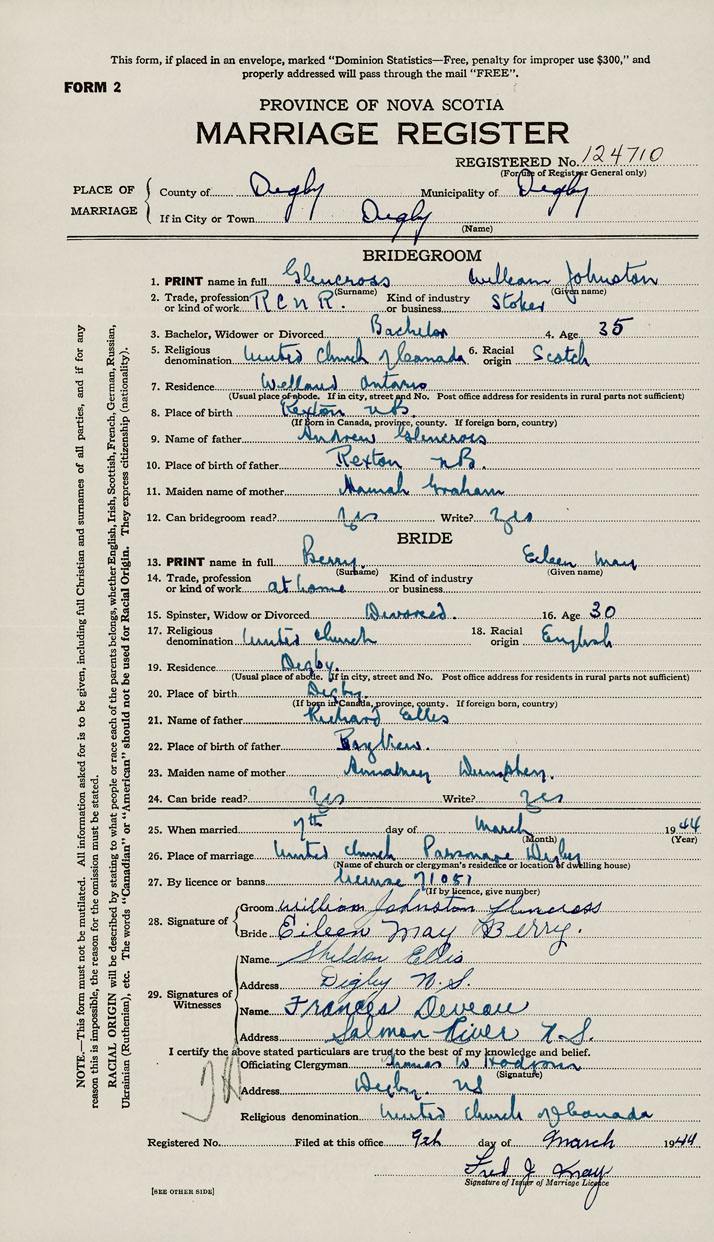 This form, if placed in an envelope, marked "Dominion Statistics—Free, penalty for improper use $300," and
properly addressed will pass through the mail "FREE".
FORM 2
PROVINCE OF NOVA SCOTIA
MARRIAGE REGISTER
REGISTERED No. 124710
(For use of Registrar General only)
PLACE OF MARRIAGE
County of Digby Municipality of Digby
If in City or Town Digby
(Name)
BRIDEGROOM
1. PRINT name in full Glencross William Johnston
(Surname) (Given name)
2. Trade, profession or kind of work R C N R. Kind of industry or business Stoker
3. Bachelor, Widower or Divorced Bachelor 4. Age 35
5. Religious denomination United Church of Canada 6. Racial origin Scotch
7. Residence Welland Ontario
(Usual place of abode. If in city, street and No. Post office address for residents in rural parts not sufficient)
8. Place of birth Rexton N.B.
(If born in Canada, province, county. If foreign born, country)
9. Name of father Andrew Glencross
10. Place of birth of father Rexton N.B.
11. Maiden name of mother Hannah Graham
12. Can bridegroom read? Yes Write? Yes
BRIDE
13. PRINT name in full Berry Eileen May
(Surname) (Given name)
14. Trade, profession or kind of work at home Kind of industry or business
15. Spinster, Widow or Divorced Divorced. 16. Age 30
17. Religious denomination United Church 18. Racial origin English
19. Residence Digby.
(Usual place of abode. If in city, street and No. Post office address for residents in rural parts not sufficient)
20. Place of birth Digby.
(If born in Canada, province, county. If foreign born, country)
21. Name of father Richard Elles
22. Place of birth of father Bay View.
23. Maiden name of mother
24. Can bride read? Yes Write? Yes
25. When married 7th day of March 1944
(Month) (Year)
26. Place of marriage United Church Parsonage Digby
(Name of church or clergyman's residence or location of dwelling house)
27. By licence or banns license 71051
(If by licence, give number)
28. Signature of
Groom William Johnston Glencross
Bride Eileen May Berry.
29. Signatures of Witnesses
Name Sheldon Ellis
Address Digby N.S.
Name Frances Deveau
Address Salmon River N.S.
I certify the above stated particulars are true to the best of my knowledge and belief.
Officiating Clergyman W Hodgson
(Signature)
Address Digby. NS
Religious denomination United Church of Canada
Registered No. Filed at this office 9th day of March 1944
Fred J
Signature of Issuer of Marriage Licence
[SEE OTHER SIDE]
NOTE.—This form must not be mutilated. All information asked for is to be given, including full Christian and surnames of all parties, and if for any
reason this is impossible, the reason for the omission must be stated.
RACIAL ORIGIN will be described by stating to what people or race each of the parents belongs, whether English, Irish, Scottish, French, German, Russian,
Ukrainian (Ruthenian), etc. The words "Canadian" or "American" should not be used for Racial Origin. They express citizenship (nationality).